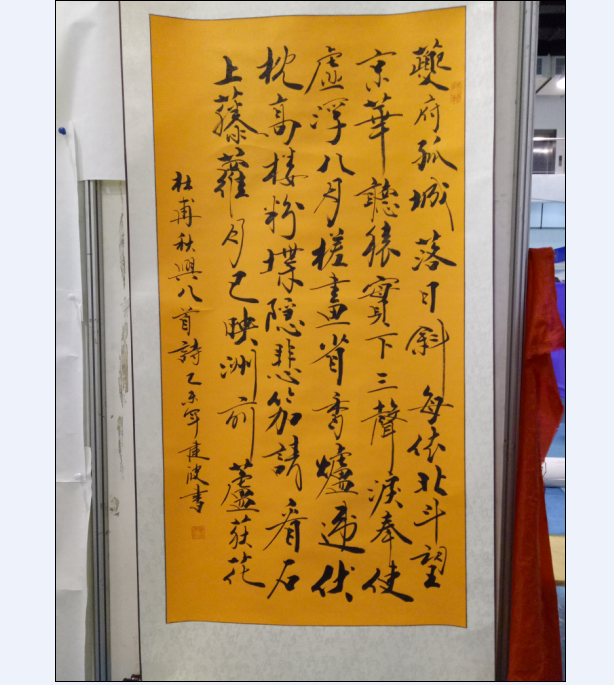 夔府孤城落日斜每依北斗望
京華聽猿實下三聲淚奉使
虛浮八月槎畫省香爐違伏
枕高樓粉堞隱悲笳請看石
上藤蘿月已映洲前蘆荻花
杜甫秋興八首詩乙未年建波書